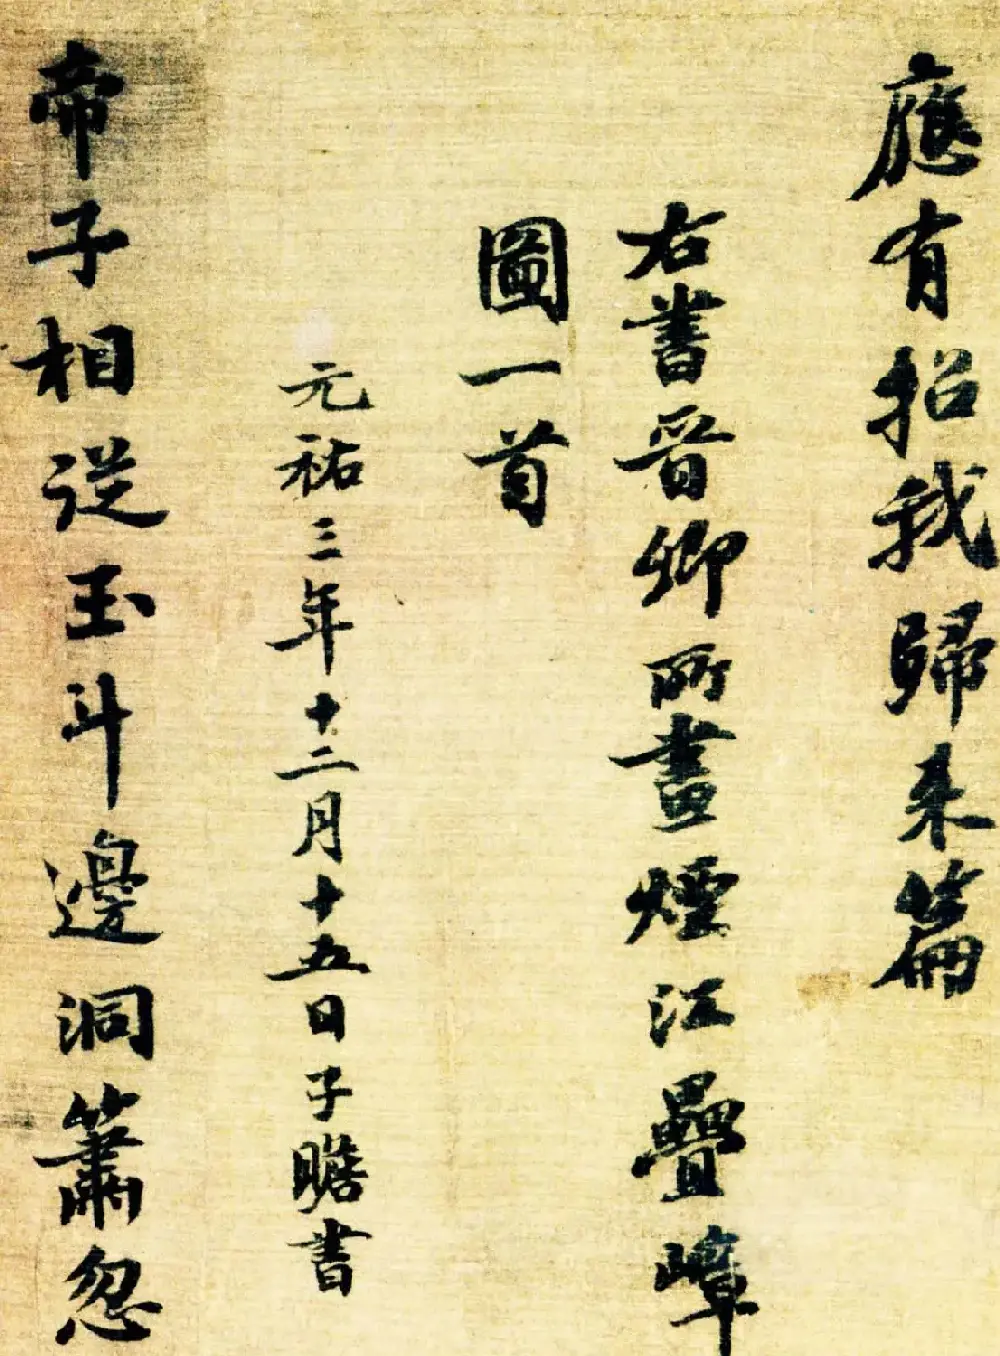 應有招我歸来篇
右書晉卿所畫煙江疊嶂
圖一首
元祐三年十二月十五日子瞻書
帝子相從玉斗邊洞簫忽